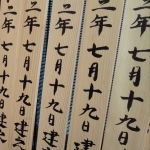 年七月十九日
年七月十九日建
年七月十九日建
年七月十九日建
年七月十九日建